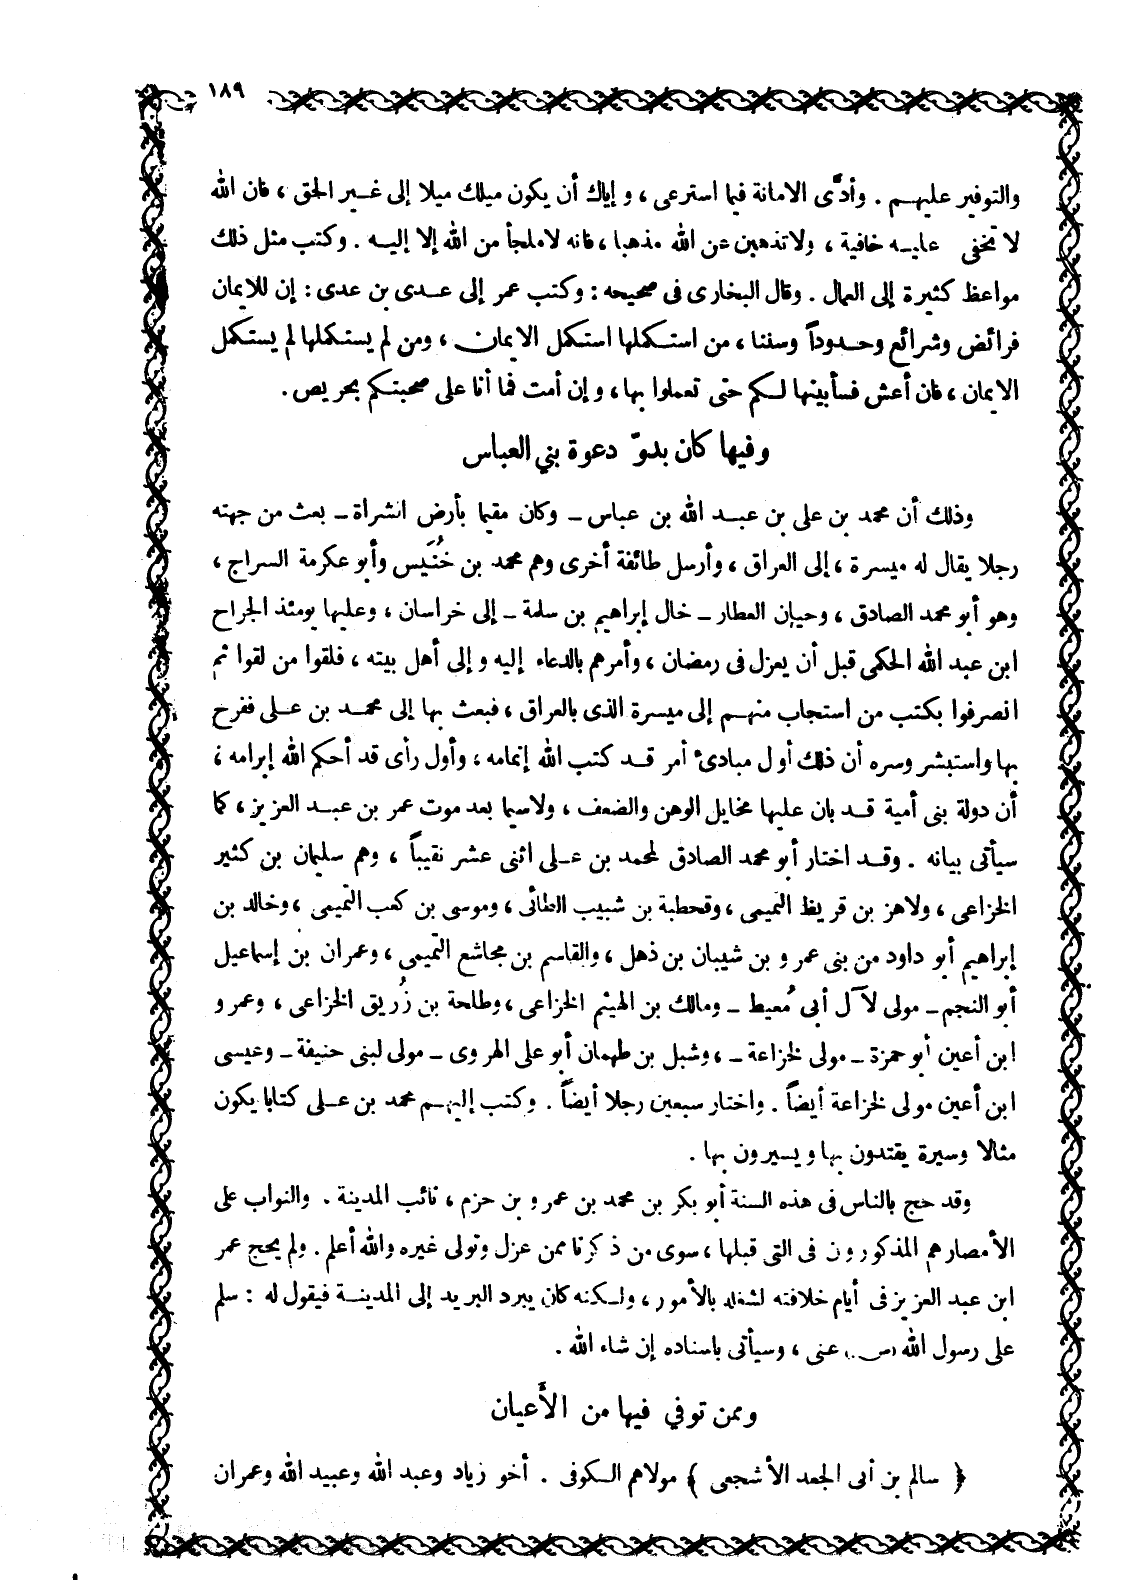 ١٨٩
والتوفير عليهم . وأدَّى الامانة فيما استرعى ، و إياك أن يكون ميلك ميلا إلى غير الحق ، فان الله
لا تخفى عليه خافية ، ولا تذهبن عن الله مذهبا ، فانه لا ملجأ من الله إلا إليه . وكتب مثل ذلك
مواعظ كثيرة إلى العمال . وقال البخارى فى صحيحه : وكتب عمر إلى عدى بن عدى : إن للايمان
فرائض وشرائع وحدوداً وسننا ، من استكملها استكمل الايمان ، ومن لم يستكملها لم يستكمل
الايمان ، فان أعش فسأبينها لكم حتى تعملوا بها ، و إن أمت فما أنا على صحبتكم بحريص .
وفيها كان بدوّ دعوة بني العباس
وذلك أن محمد بن على بن عبد الله بن عباس ـ وكان مقيما بأرض الشراة ـ بعث من جهته
رجلا يقال له ميسرة ، إلى العراق ، وأرسل طائفة أخرى وهم محمد بن خُنَيس وأبو عكرمة السراج ،
وهو أبو محمد الصادق ، وحيان العطار ـ خال إبراهيم بن سلمة ـ إلى خراسان ، وعليها يومئذ الجراح
ابن عبد الله الحكمى قبل أن يعزل فى رمضان ، وأمرهم بالدعاء إليه و إلى أهل بيته ، فلقوا من لقوا ثم
انصرفوا بكتب من استجاب منهم إلى ميسرة الذى بالعراق ، فبعث بها إلى محمد بن على ففرح
بها واستبشر وسره أن ذلك أول مبادئ أمر قد كتب الله إتمامه ، وأول رأى قد أحكم الله إبرامه ،
أن دولة بنى أمية قد بان عليها مخايل الوهن والضعف ، ولاسيما بعد موت عمر بن عبد العزيز ، كما
سيأتى بيانه . وقد اختار أبو محمد الصادق لمحمد بن على اثنى عشر نقيباً ، وهم سليمان بن كثير
الخزاعى ، ولاهز بن قريظ التميمى ، وقحطبة بن شبيب الطائى ، وموسى بن كعب التميمى ، وخالد بن
إبراهيم أبو داود من بنى عمرو بن شيبان بن ذهل ، والقاسم بن مجاشع التميمى ، وعمران بن إسماعيل
أبو النجم ـ مولى لآل أبى مُعيط ـ ومالك بن الهيثم الخزاعى ، وطلحة بن زُريق الخزاعى ، وعمرو
ابن أعين أبو حمزة ـ مولى لخزاعة ـ ، وشبل بن طهمان أبو على الهروى ـ مولى لبنى حنيفة ـ وعيسى
ابن أعين مولى لخزاعة أيضاً . واختار سبعين رجلا أيضاً . وكتب إليهم محمد بن على كتابا يكون
مثالا وسيرة يقتدون بها ويسيرون بها .
وقد حج بالناس فى هذه السنة أبو بكر بن محمد بن عمرو بن حزم ، نائب المدينة . والنواب على
الأمصار هم المذكورون فى التى قبلها ، سوى من ذكرنا ممن عزل وتولى غيره والله أعلم . ولم يحج عمر
ابن عبد العزيز فى أيام خلافته لشغله بالأمور ، ولكنه كان يبرد البريد إلى المدينة فيقول له : سلم
على رسول الله (س) عنى ، وسيأتى باسناده إن شاء الله .
وممن توفي فيها من الأعيان
﴿ سالم بن أبى الجعد الأشجعى ﴾ مولاهم الكوفى . أخو زياد وعبد الله وعبيد الله وعمران